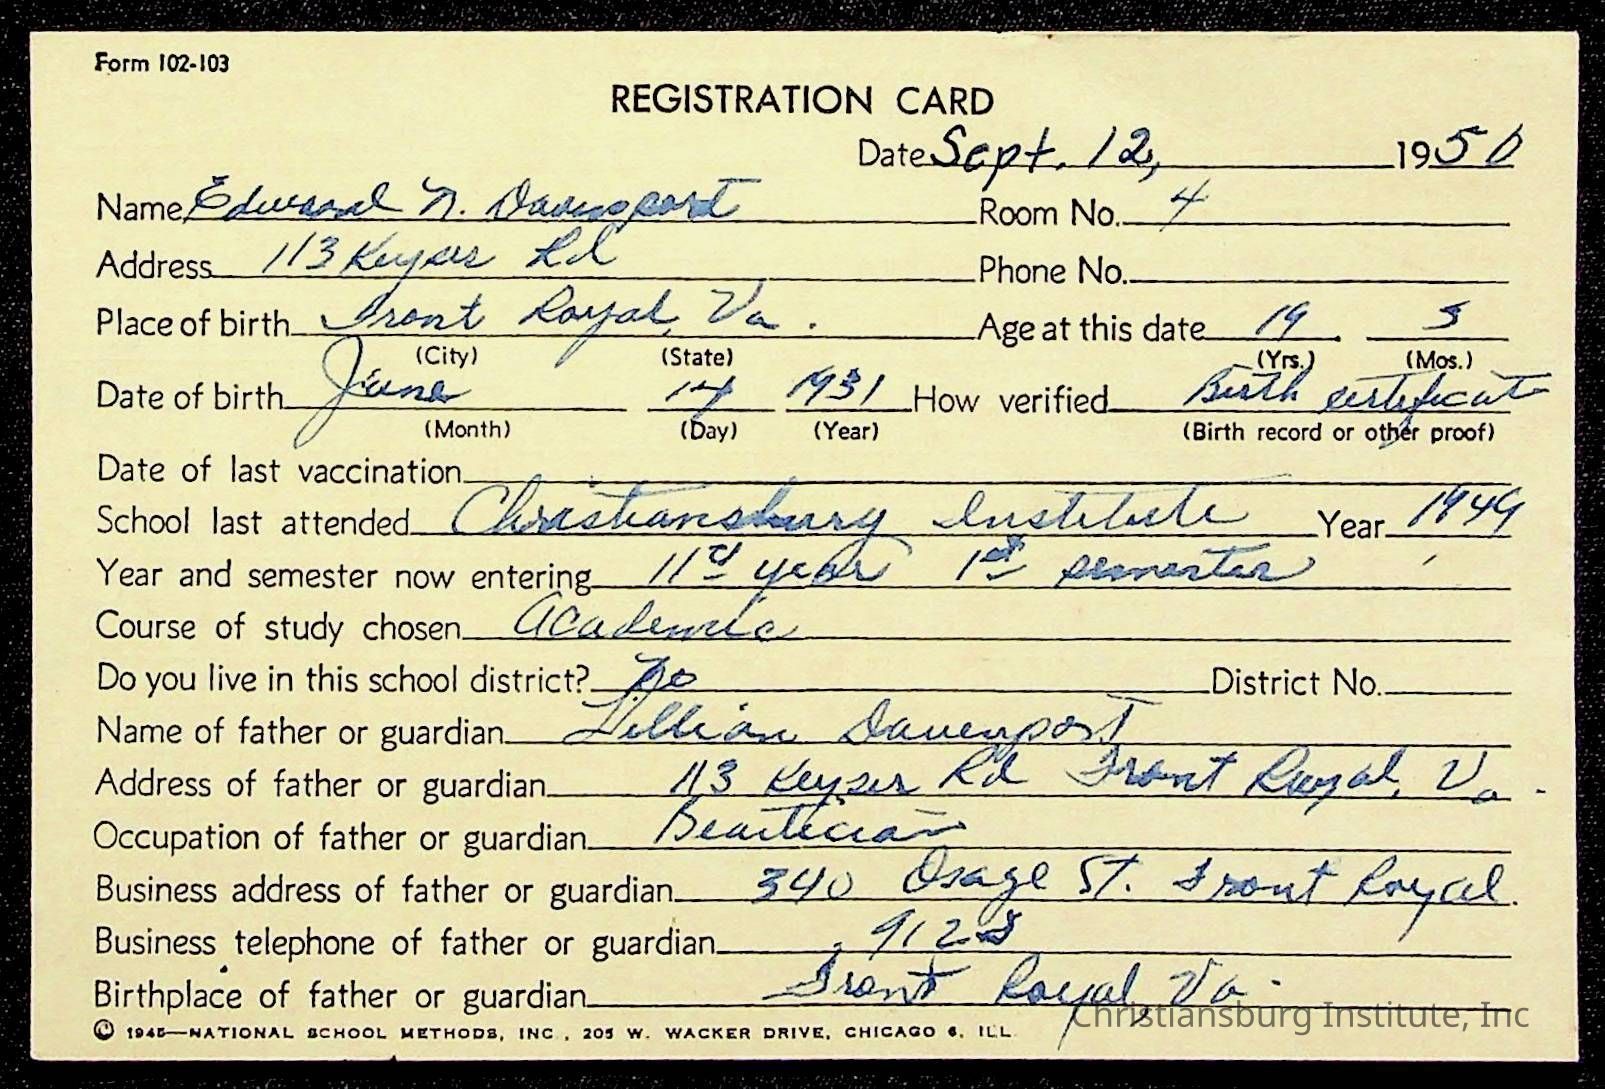 Form 102-103
REGISTRATION CARD
Date Sept. 12, 1950
Name Edward N. Davenport Room No. 4
Address 113 Keyser Rd Phone No.
Place of birth Front Royal, Va. Age at this date 19 3
(City) (State) (Yrs.) (Mos.)
Date of birth June 14 1931 How verified Birth certificate
(Month) (Day) (Year) (Birth record or other proof)
Date of last vaccination
School last attended Christiansburg Institute Year 1949
Year and semester now entering 11th year 1st semester
Course of study chosen Academic
Do you live in this school district? No District No.
Name of father or guardian Lillian Davenport
Address of father or guardian 113 Keyser Rd Front Royal, Va.
Occupation of father or guardian Beautician
Business address of father or guardian 340 Osage St. Front Royal.
Business telephone of father or guardian
Birthplace of father or guardian Front Royal, Va.
Christiansburg Institute, Inc
© 1945—NATIONAL SCHOOL METHODS, INC., 205 W. WACKER DRIVE, CHICAGO 6, ILL.